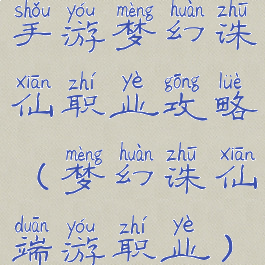 shǒu yóu mèng huàn zhū
手游梦幻诛
xiān zhí yè gōng lüè
仙职业攻略
mèng huàn zhū xiān
（梦幻诛仙
duān yóu zhí yè
端游职业）